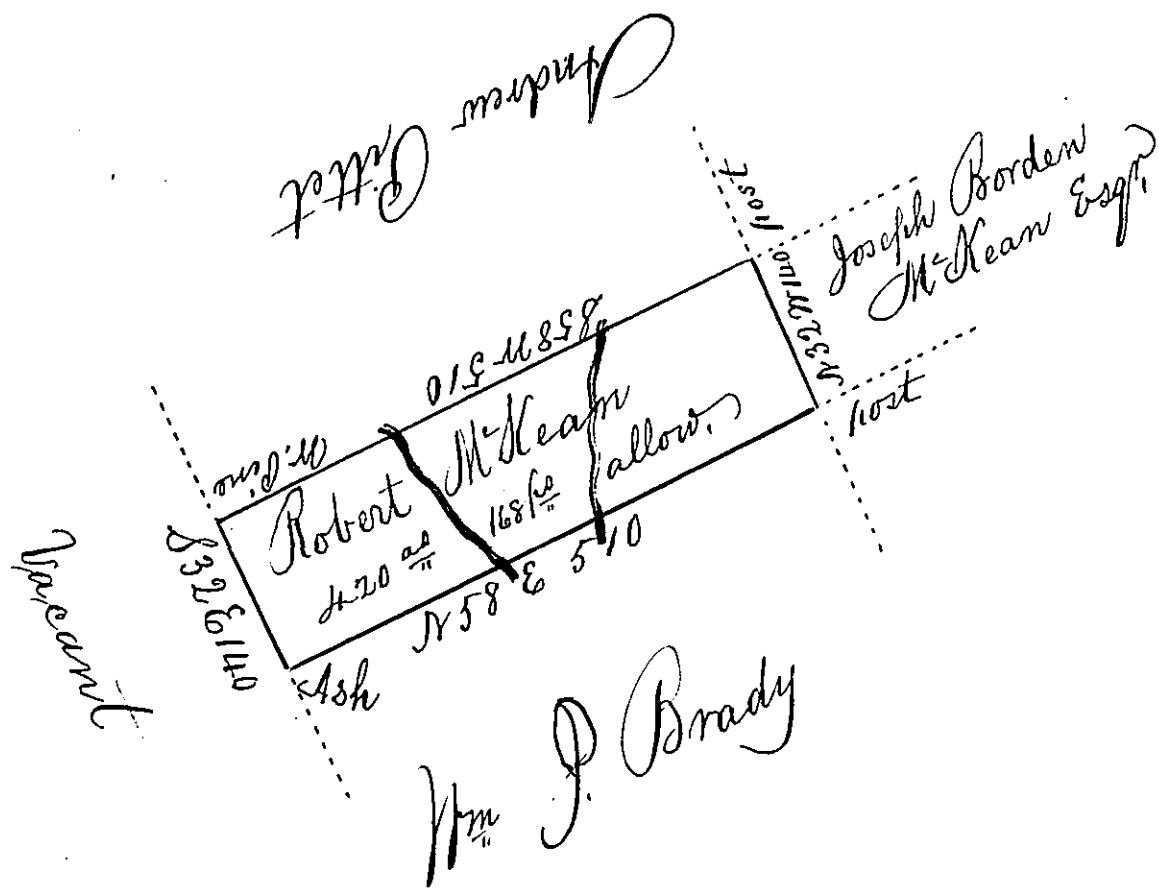 Andrew
Pittet
Joseph Borden
McKean Esqr.
post
N32W140
post
S58W510
W. Pine
Robert McKean
420 as 168 ps allow.
N58E510
S32E140
Ash
Vacant
Wm P. Brady